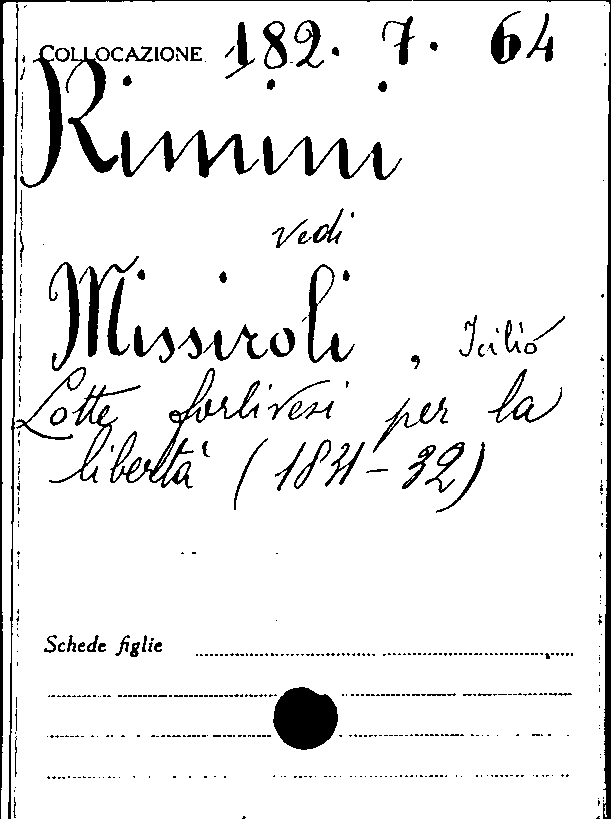 COLLOCAZIONE 182. 7. 64
Rimini
vedi
Missiroli, Icilio
Lotte forlivesi per la
libertà (1831-32)
Schede figlie